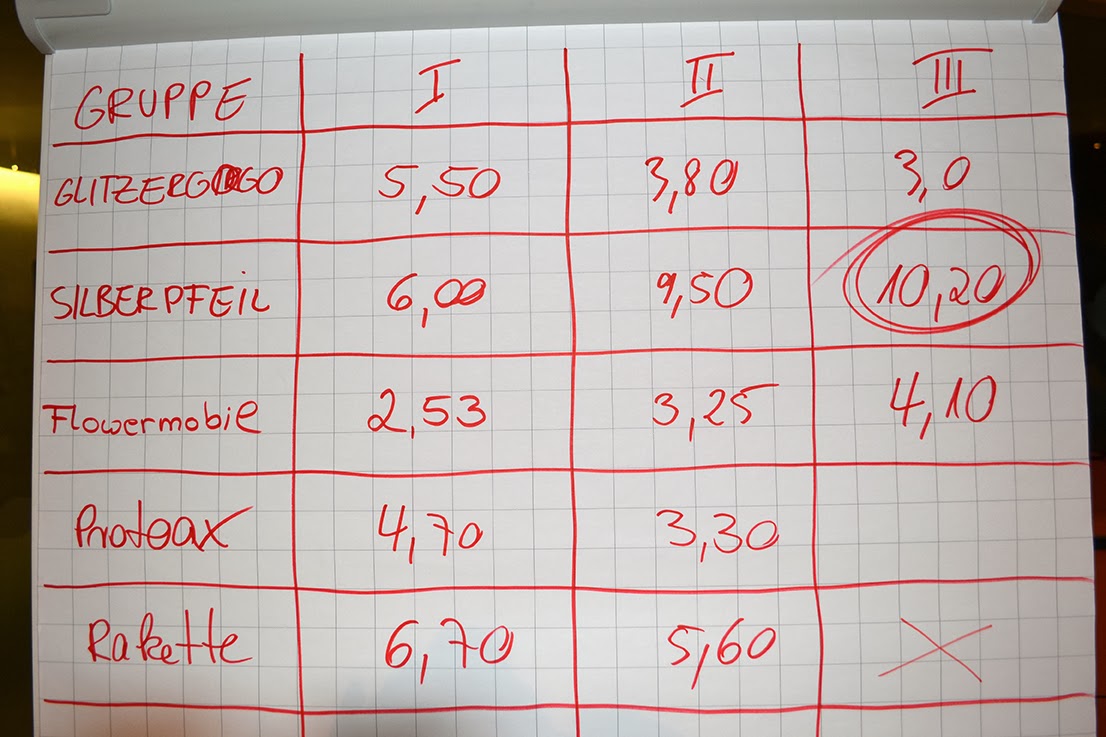 GRUPPE I II III
GLITZERGOGO 5,50 3,80 3,0
SILBERPFEIL 6,00 9,50 10,20
Flowermobie 2,53 3,25 4,10
Proteax 4,70 3,30
Rakette 6,70 5,60 X